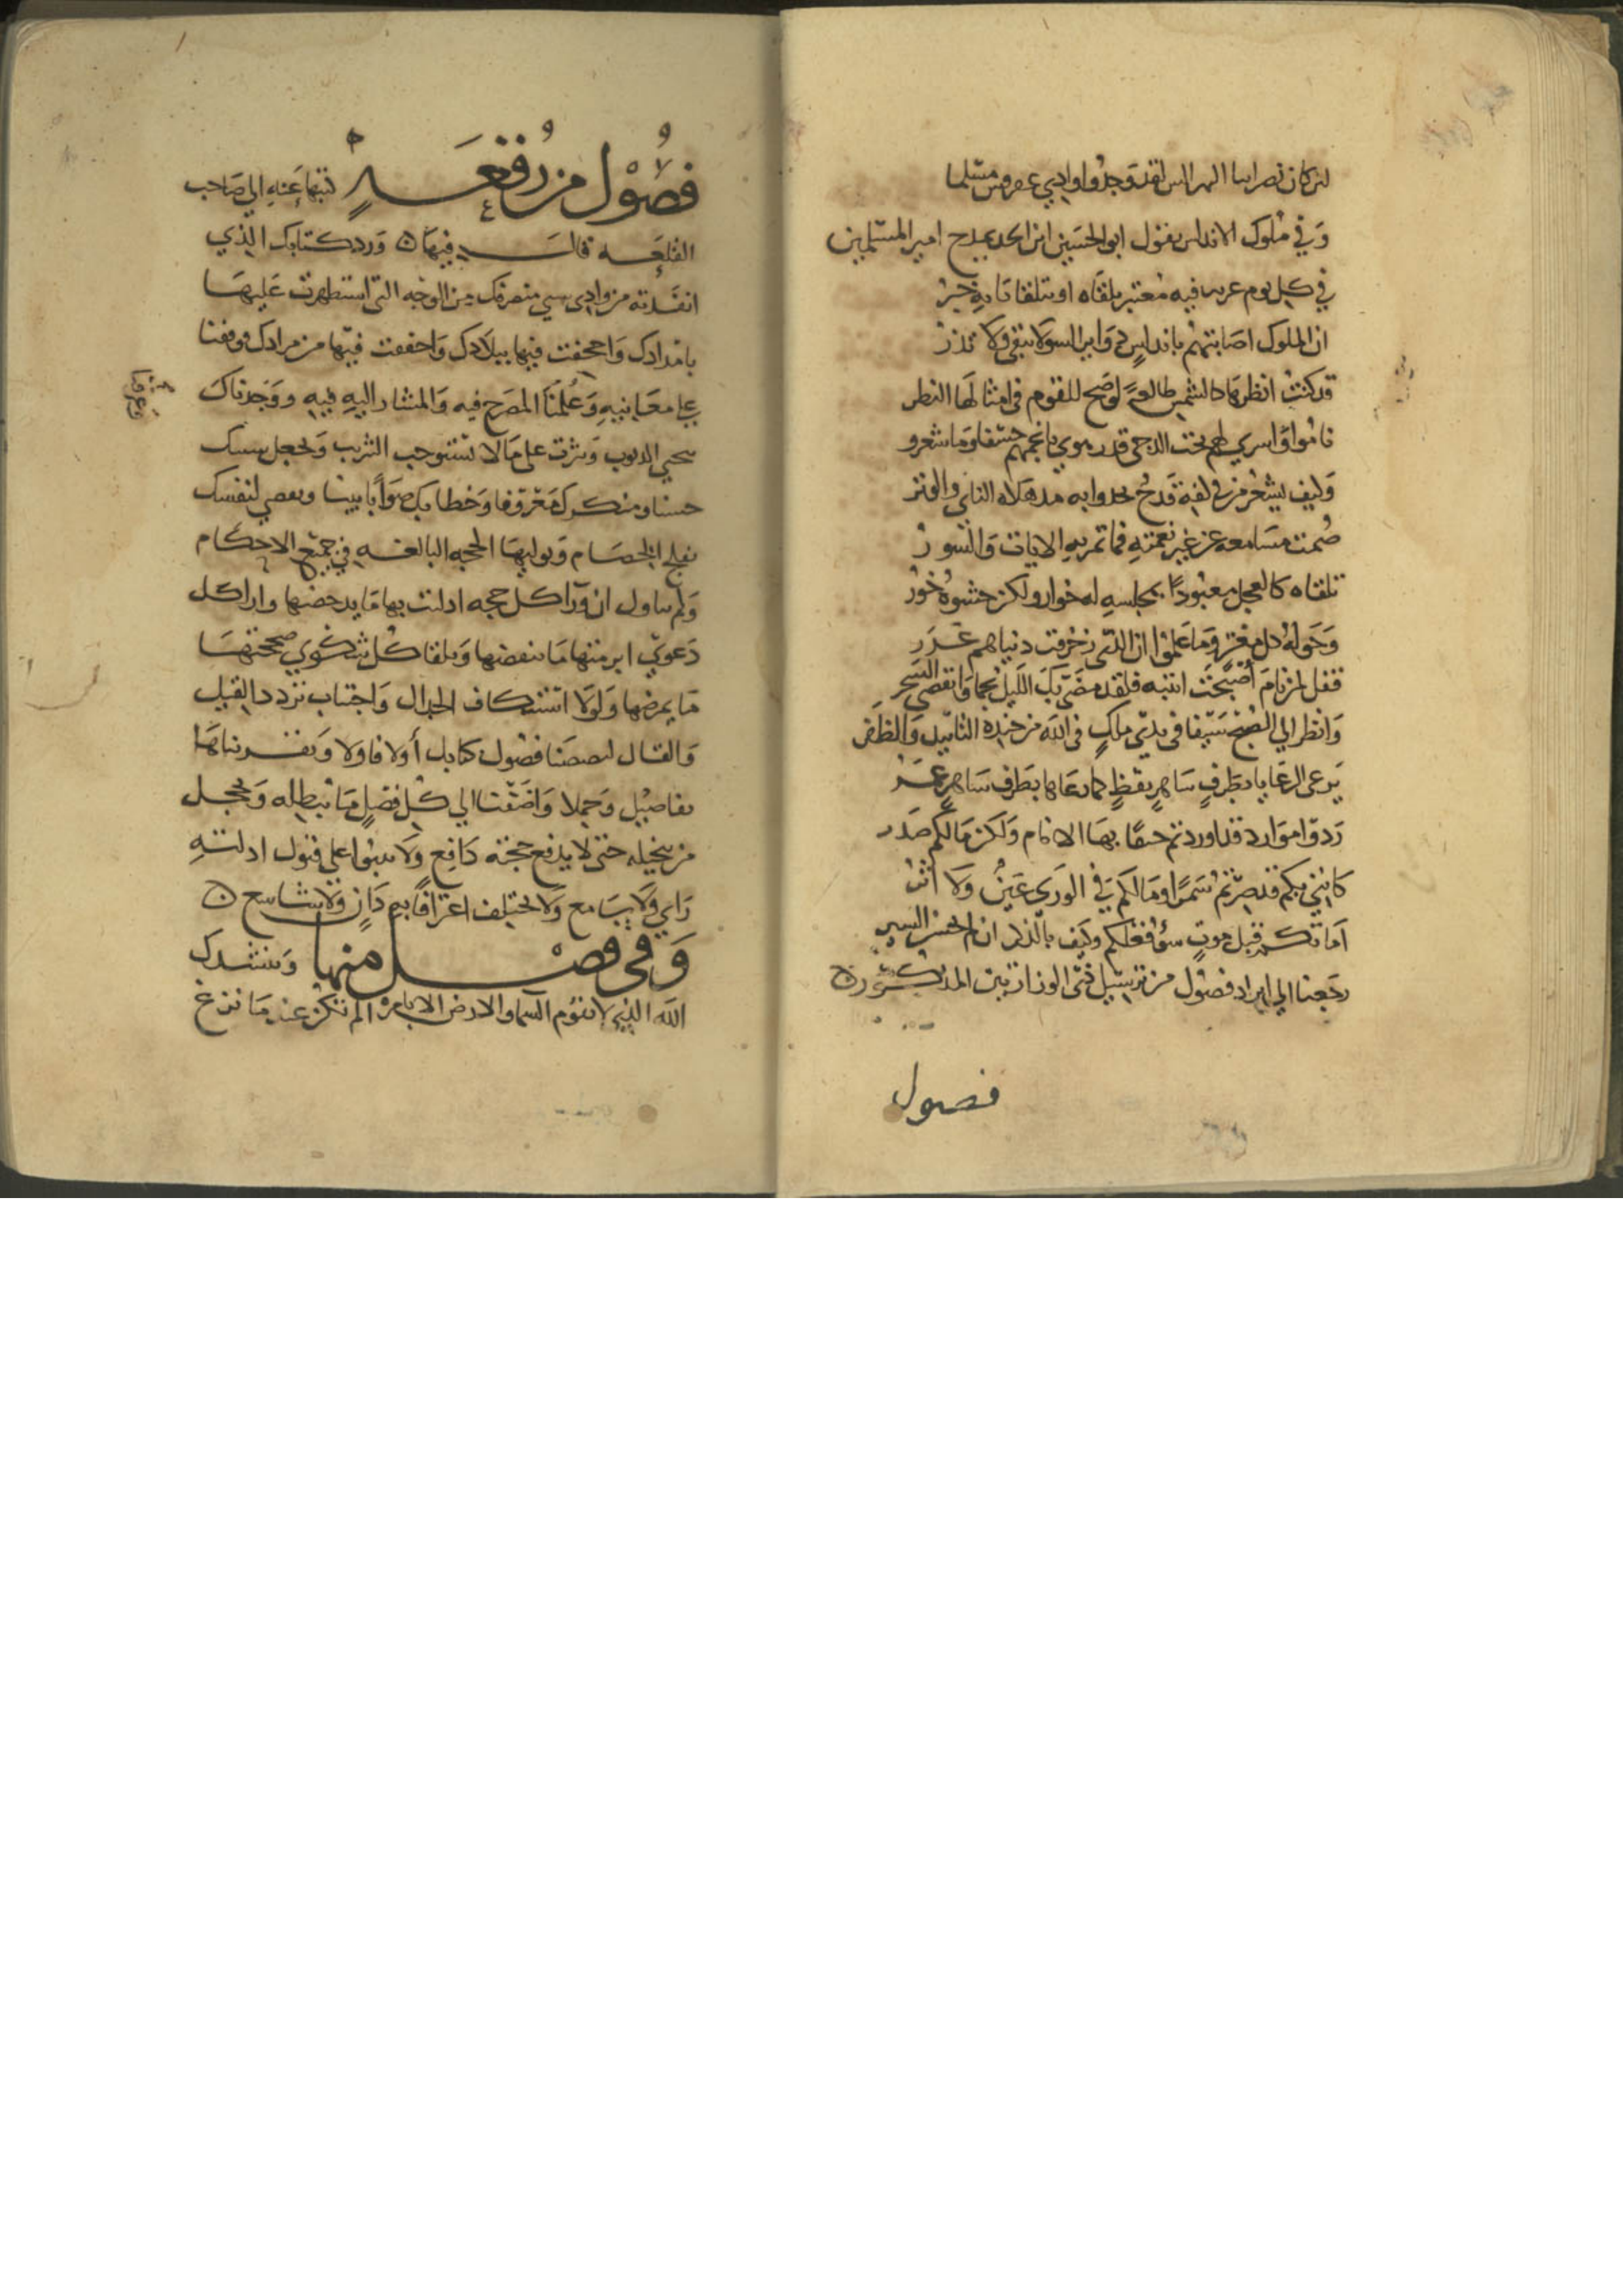 لئن كان نصرانيا لقد وجدوا وادي مسلما
وَفي مُلوك الاندلس يقول ابو الحسَين ابن الجد يمدح امير المسلمين
في كل يوم غريب فيه مُعتبر يلقَاه او يتلقانا بهِ خبر
ان الملوك اصَابتهُم باندلسٍ دوَاير السو لا تبقي ولا تذرُ
قد كنتُ انظرهَا والشمس طالعةً لو صَح للقوم في امثالهَا النظر
نامُوا وَاسري لهم تحت الدجى قدر هوي بانجمهم خسفا وَما شعرو
وَكيف يشعُر مَن في كفهِ قدح يحدوا به مذهلاه الناي والوتر
صُمت مسَامعه عن غير نغمتهِ فما تمر بهِ الايات وَالسورُ
تلقَاه كالعجل معبُودًا بمجلسهِ له خوار ولكن حشوهُ خَوَرُ
وَحَوله كل مغتر وَمَا عَلمُوا ان الذي زخرفت دنياهم غَرَر
فقل لمن نامَ أصبَحت انتبه فلقد مضَى بكَ اللَيل نجما وَانقضى السَحر
وَانظر الي الصُبح سَيفا في يدَي ملكٍ في الله من جنده التأييد وَالظفر
يَرعى الرعَايا بطَرفٍ سَاهرٍ يقظٍ كما رعَاها بطَرف سَاهرٍ عُمَرُ
رَدوا موَارد قد اوردتم حنقًا بهَا الانام وَلكن مَا لكم صَدَر
كانني بكم قد صِرتم سَمرًا ومَا لكم في الوَري عَينٌ وَلا أثرُ
امَا تكم قبل موتٍ سؤ فعلكم وَكيف بالذكر ان لم تحسن السير
رجَعنا الي ايراد فصُول من ترسيل ذي الوزارتين المذكُور
فصول
فصُول من رُقعَةٍ كتبها عَنهِ الي صَاحب
القلعَه قال فيهَا وَرد كتابك الذي
انفَذته من وادي مني منصرفك من الوجه التي استظهرت عَليهَا
باضدادك وَاجحفت فيها ببلَادك وَاخفقت فيها من مرادك فوقفنا
علي معَانيهِ وَعَلمنَا المصَرح فيه وَالمشار اليهِ فيهِ ووَجدناك
تتجني الذنوب وَتثرب على مَا لا تستوجب التثريب وَتجعل سيئك
حسنا ومنكرك مَعرُوفا وَخطاك صَوَابًا بينا وتقضي لنفسك
بفلج الخصَام وَتوليهَا الحجه البالغه في جميع الاحكام
وَلم تتاول ان وَرَا كل حجه ادليت بها مَا يدحضها وازا كل
دَعوي ابرمتها مَا ينقضها وَتلقا كُل شكوي صححتهَا
مَا يمرضها ولَولا استنكاف الجدال وَاجتناب تردد القيل
وَالقال لنصصَنا فصُول كتابك أولا فاولا وَتقريناهَا
تفاصيل وَجملا وَاضَفنا الي كل فصلٍ مَا يُبطله وَيخجل
من ينتحله حتي لا يدفع حجته دَافع وَلا ينبوا علي قبول ادلتهِ
رَاي وَلا سَامع وَلا يختلف اعترَافًا به دَانٍ وَلا شاسع
وَفي فصْل منها وَننشدك
الله الذي لا تقوم السما والارض الا بامره الم تكن عند مَا نزغ